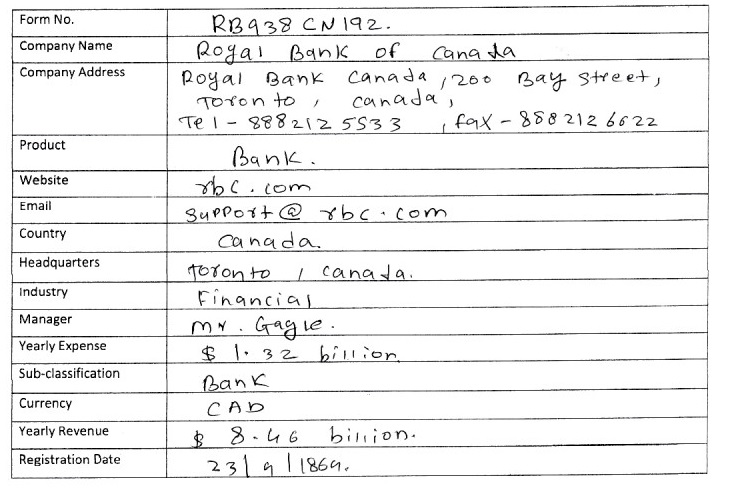 Form No. RB938CN192.
Company Name Royal Bank of Canada
Company Address Royal Bank Canada, 200 Bay Street,
Toronto, Canada,
Tel - 888 212 5533, fax - 888 212 6622
Product Bank.
Website rbc.com
Email support@rbc.com
Country Canada.
Headquarters Toronto, Canada.
Industry Financial
Manager Mr. Gagle.
Yearly Expense $ 1.32 billion
Sub-classification Bank
Currency CAD
Yearly Revenue $ 8.46 billion.
Registration Date 23/9/1869.